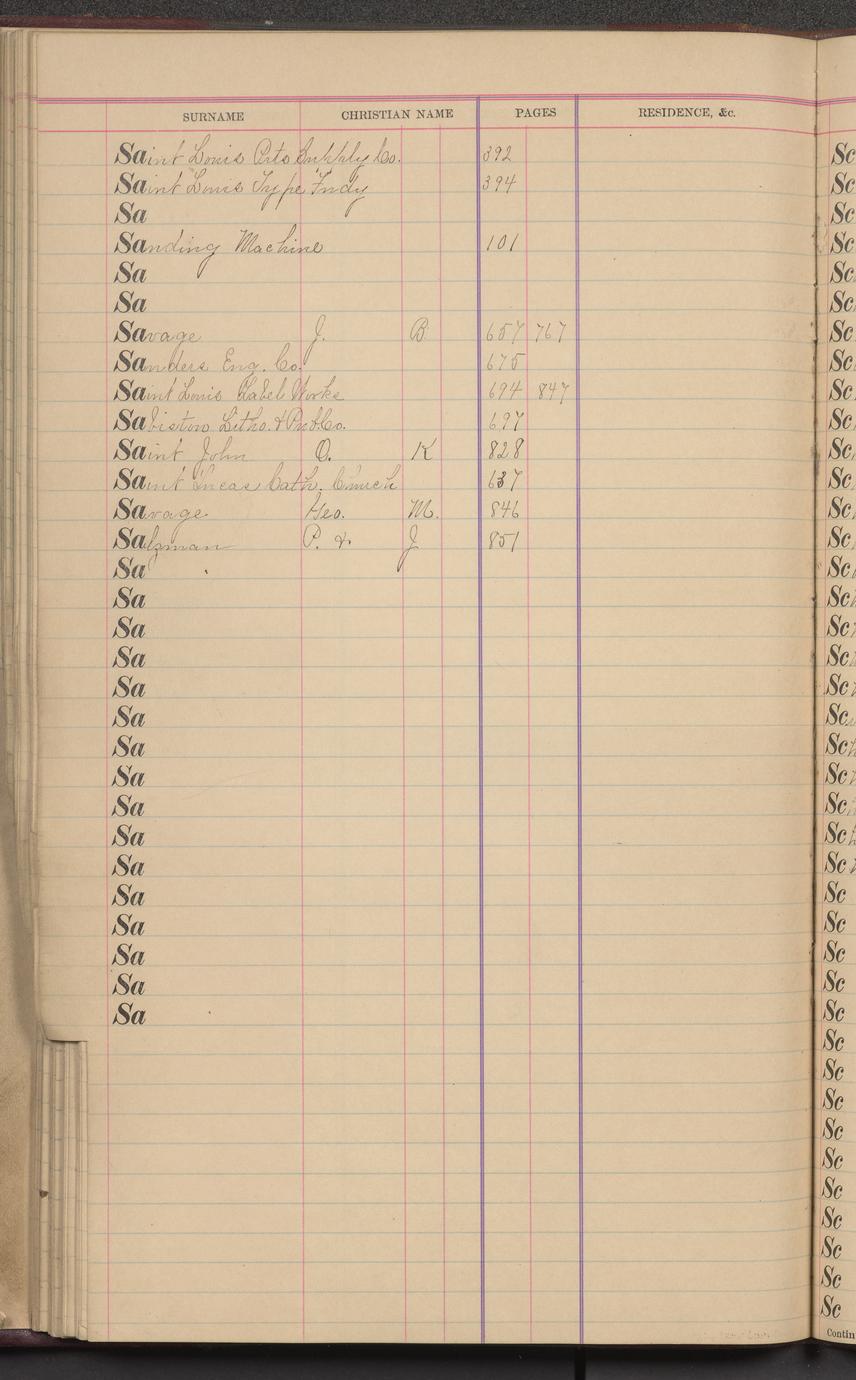 SURNAME CHRISTIAN NAME PAGES RESIDENCE, &c.
Saint Louis Arts Supply Co. 392
Saint Louis Type Fndy 394
Sa
Sanding Machine 101
Sa
Sa
Savage J. B. 657 767
Sanders Eng. Co. 675
Saint Louis Label Works 694 847
Sabiston Litho. & Pub Co. 697
Saint John O. K 828
Saint Lucas Cath. Church 637
Savage Geo. M. 846
Salzman P. & J 851
Sa
Sa
Sa
Sa
Sa
Sa
Sa
Sa
Sa
Sa
Sa
Sa
Sa
Sa
Sa
Sa
Sc
Sc
Sc
Sc
Sc
Sc
Sc
Sc
Sc
Sc
Sc
Sc
Sc
Sc
Sc
Sc
Sc
Sc
Sc
Sc
Sc
Sc
Sc
Sc
Sc
Sc
Sc
Sc
Sc
Sc
Sc
Sc
Sc
Sc
Sc
Sc
Sc
Sc
Sc
Sc
Contin